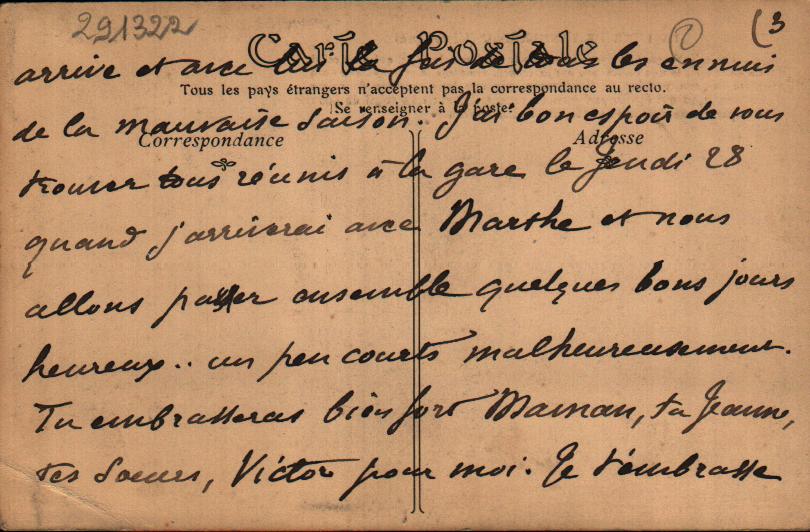 291322
(3
Carte Postale
arrive et avec lui la fin de tous les ennuis
Tous les pays étrangers n'acceptent pas la correspondance au recto.
Se renseigner à la poste.
de la mauvaise saison. J'ai bon espoir de vous
Correspondance
Adresse
trouver tous réunis à la gare le Jeudi 28
quand j'arriverai avec Marthe et nous
allons passer ensemble quelques bons jours
heureux.. un peu courts malheureusement.
Tu embrasseras bien fort Maman, ta Jeanne,
tes soeurs, Victor pour moi. Je t'embrasse